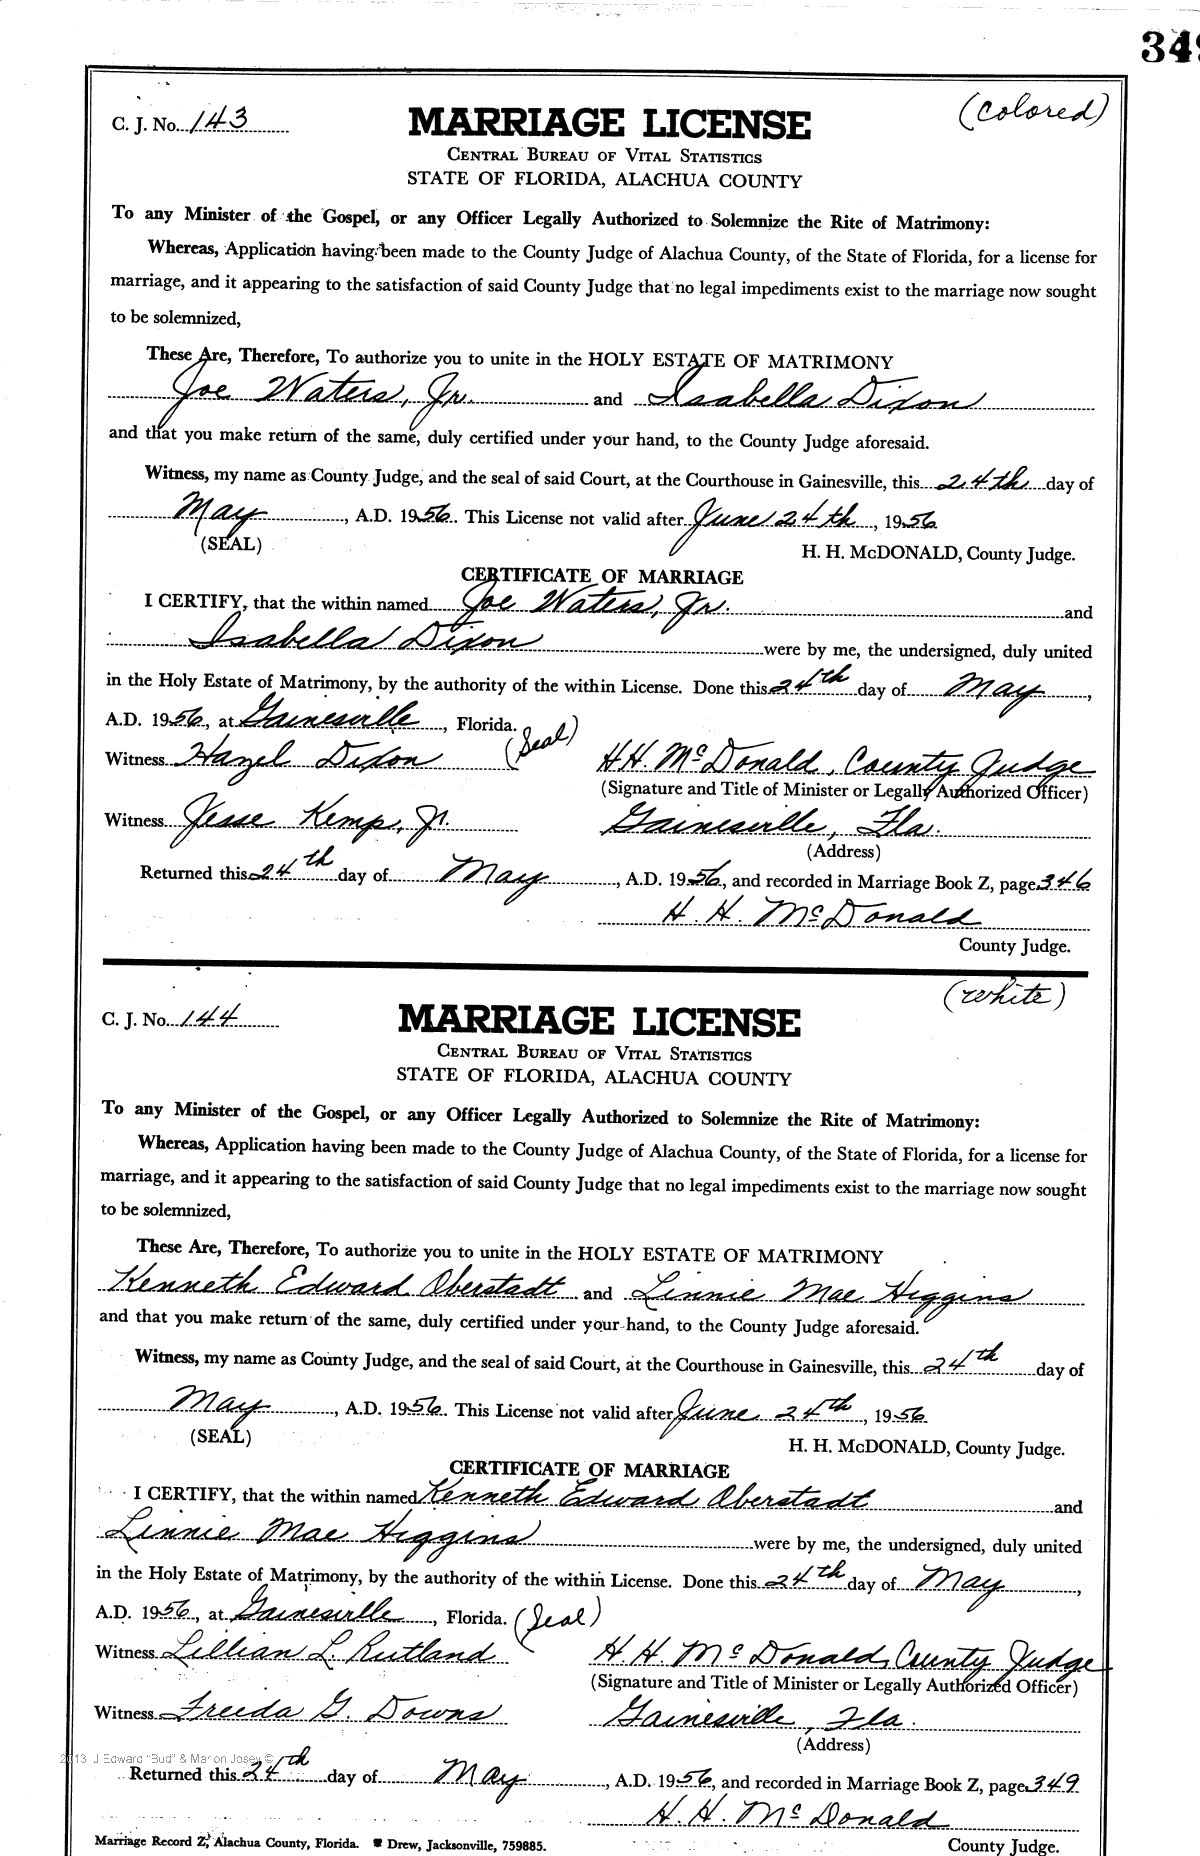 349
C. J. No. 143
(colored)
MARRIAGE LICENSE
CENTRAL BUREAU OF VITAL STATISTICS
STATE OF FLORIDA, ALACHUA COUNTY
To any Minister of the Gospel, or any Officer Legally Authorized to Solemnize the Rite of Matrimony:
Whereas, Application having been made to the County Judge of Alachua County, of the State of Florida, for a license for
marriage, and it appearing to the satisfaction of said County Judge that no legal impediments exist to the marriage now sought
to be solemnized,
These Are, Therefore, To authorize you to unite in the HOLY ESTATE OF MATRIMONY
Joe Waters, Jr. and Isabella Dixon
and that you make return of the same, duly certified under your hand, to the County Judge aforesaid.
Witness, my name as County Judge, and the seal of said Court, at the Courthouse in Gainesville, this 24th day of
May, A.D. 1956. This License not valid after June 24th, 1956
(SEAL)
H. H. McDONALD, County Judge.
CERTIFICATE OF MARRIAGE
I CERTIFY, that the within named Joe Waters, Jr. and
Isabella Dixon were by me, the undersigned, duly united
in the Holy Estate of Matrimony, by the authority of the within License. Done this 24th day of May,
A.D. 1956, at Gainesville, Florida. (Seal)
Witness Hazel Dixon H.H. McDonald, County Judge
(Signature and Title of Minister or Legally Authorized Officer)
Witness Jesse Kemp, Jr. Gainesville, Fla.
(Address)
Returned this 24th day of May, A.D. 1956, and recorded in Marriage Book Z, page 346
H. H. McDonald
County Judge.
(white)
C. J. No. 144
MARRIAGE LICENSE
CENTRAL BUREAU OF VITAL STATISTICS
STATE OF FLORIDA, ALACHUA COUNTY
To any Minister of the Gospel, or any Officer Legally Authorized to Solemnize the Rite of Matrimony:
Whereas, Application having been made to the County Judge of Alachua County, of the State of Florida, for a license for
marriage, and it appearing to the satisfaction of said County Judge that no legal impediments exist to the marriage now sought
to be solemnized,
These Are, Therefore, To authorize you to unite in the HOLY ESTATE OF MATRIMONY
Kenneth Edward Oberstadt and Linnie Mae Higgins
and that you make return of the same, duly certified under your hand, to the County Judge aforesaid.
Witness, my name as County Judge, and the seal of said Court, at the Courthouse in Gainesville, this 24th day of
May, A.D. 1956. This License not valid after June 24th, 1956
(SEAL)
H. H. McDONALD, County Judge.
CERTIFICATE OF MARRIAGE
I CERTIFY, that the within named Kenneth Edward Oberstadt and
Linnie Mae Higgins were by me, the undersigned, duly united
in the Holy Estate of Matrimony, by the authority of the within License. Done this 24th day of May,
A.D. 1956, at Gainesville, Florida. (Seal)
Witness Lillian L. Rutland H. H. McDonald, County Judge
(Signature and Title of Minister or Legally Authorized Officer)
Witness Freida G. Downs Gainesville, Fla.
(Address)
2013 J Edward "Bud" & Marion Josey ©
Returned this 24th day of May, A.D. 1956, and recorded in Marriage Book Z, page 349
H. H. McDonald
Marriage Record Z, Alachua County, Florida. Drew, Jacksonville, 759885.
County Judge.